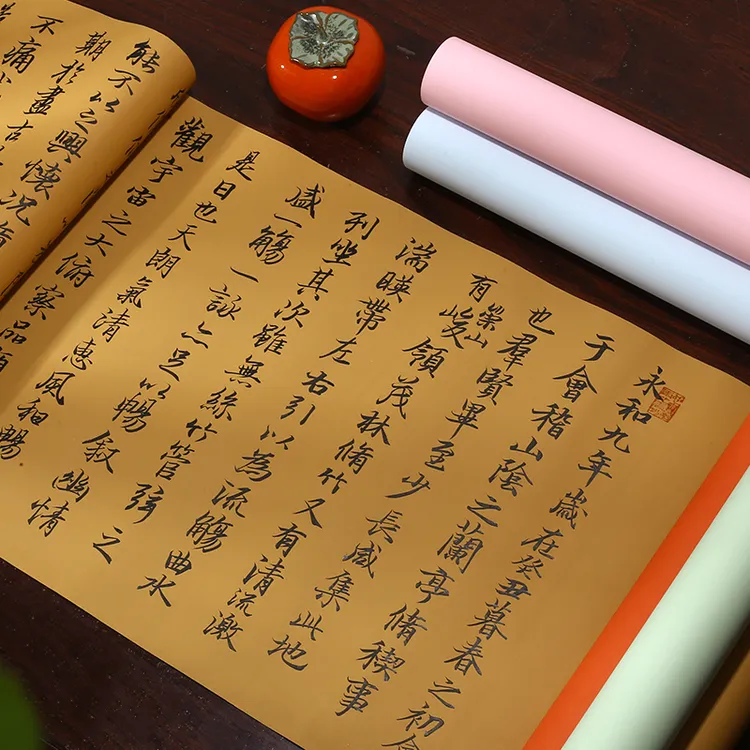 永和九年歲在癸丑暮春之初會
于會稽山陰之蘭亭脩稧事
也群賢畢至少長咸集此地
有崇山峻領茂林脩竹又有清流激
湍暎帶左右引以為流觴曲水
列坐其次雖無絲竹管弦之
盛一觴一詠亦足以暢叙幽情
是日也天朗氣清惠風和暢
觀宇宙之大俯察品類
能不以之興懷況脩
期於盡古
不痛